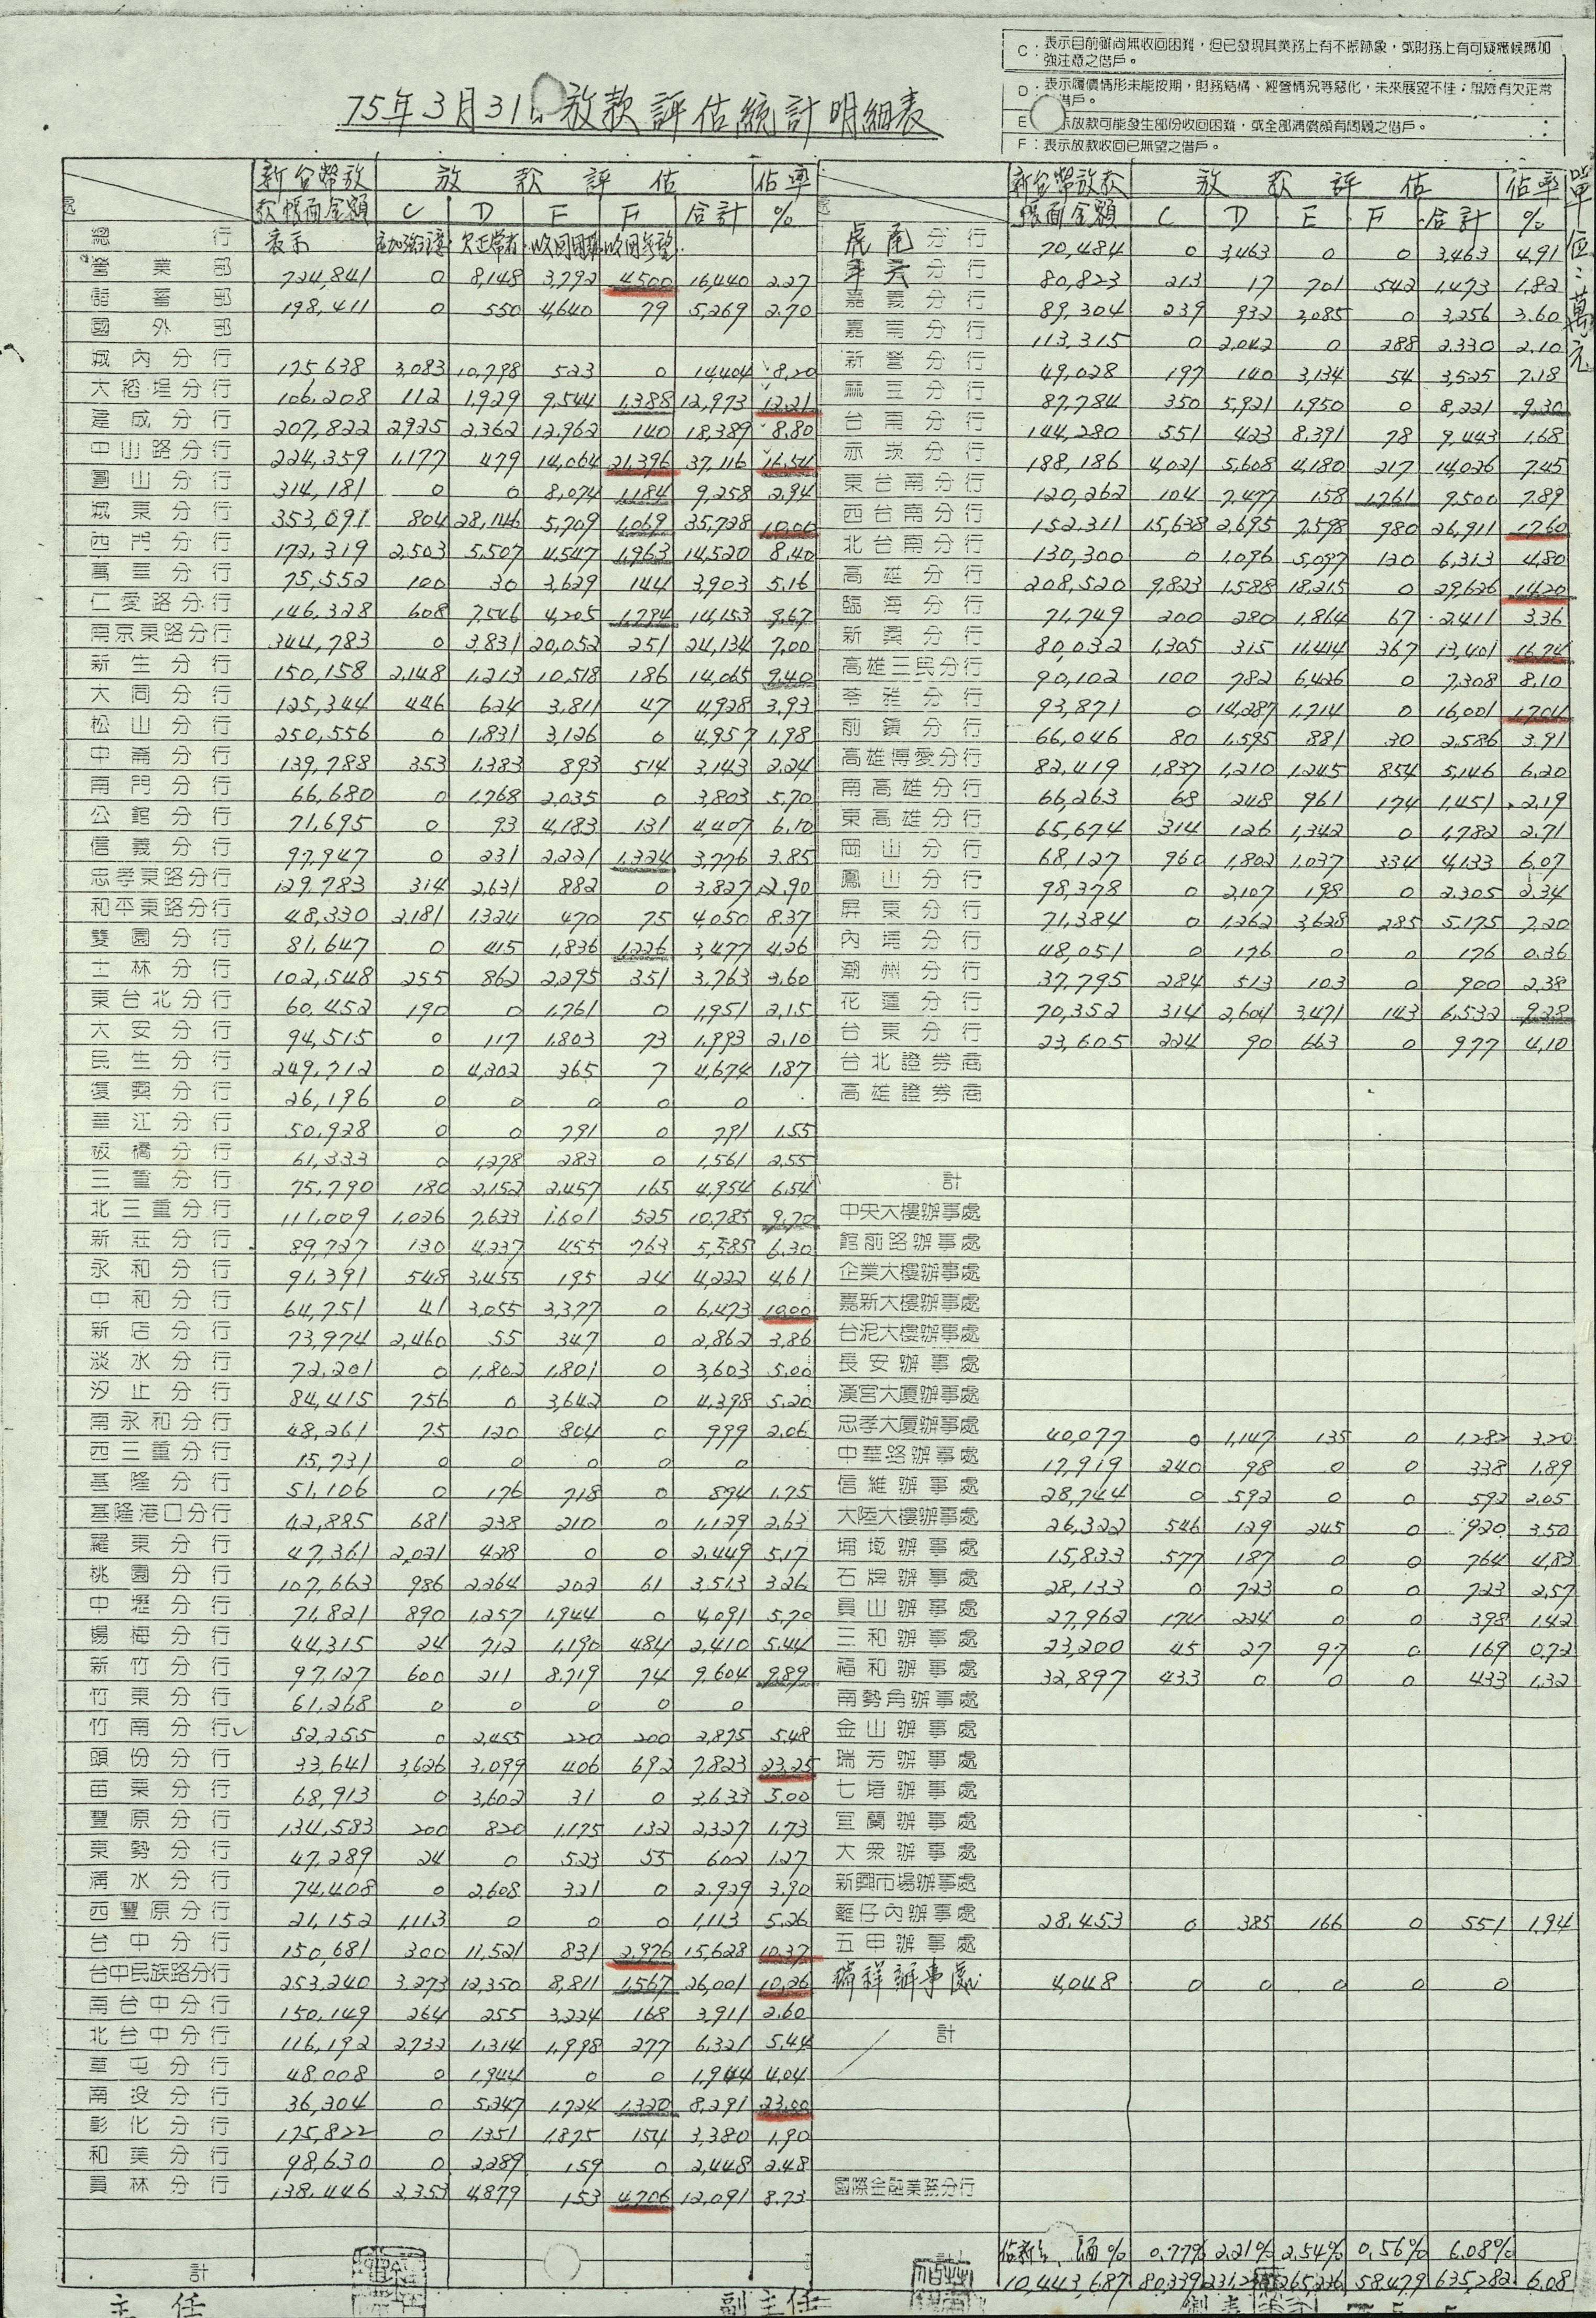 C：表示目前雖尚無收回困難，但已發現其業務上有不振跡象，或財務上有可疑癥候應加
強注意之借戶。
D：表示履償情形未能按期，財務結構、經營情況等惡化，未來展望不佳；無陸有欠正常
借戶。
E 示放款可能發生部份收回困難，或全部清償頗有問題之借戶。
F：表示放款收回已無望之借戶。
75年3月31日放款評估統計明細表
單位：萬元
新台幣放款帳面金額 放款評估 佔率
C D E F 合計 %
總行 表示 欠正常者 收回困難 收回無望
營業部 724,841 0 8,148 3,792 4,500 16,440 2.27
儲蓄部 198,411 0 550 4,640 79 5,269 2.70
國外部
城內分行 175,638 3,083 10,798 523 0 14,404 8.20
大稻埕分行 106,208 112 1,929 9,544 1,388 12,973 12.21
建成分行 207,822 2,925 2,362 12,962 140 18,389 8.80
中山路分行 224,359 1,177 479 14,064 21,396 37,116 16.54
圓山分行 314,181 0 0 8,074 1,184 9,258 2.94
城東分行 353,091 804 28,146 5,709 1,069 35,728 10.00
西門分行 172,319 2,503 5,507 4,547 1,963 14,520 8.40
萬華分行 75,552 100 30 3,629 144 3,903 5.16
仁愛路分行 146,328 608 7,546 4,205 1,794 14,153 9.67
南京東路分行 344,783 0 3,831 20,052 251 24,134 7.00
新生分行 150,158 2,148 1,213 10,518 186 14,065 9.40
大同分行 125,344 446 624 3,811 47 4,928 3.93
松山分行 250,556 0 1,831 3,126 0 4,957 1.98
中崙分行 139,788 353 1,383 893 514 3,143 2.24
南門分行 66,680 0 1,768 2,035 0 3,803 5.70
公館分行 71,695 0 93 4,183 131 4,407 6.10
信義分行 97,947 0 231 2,221 1,324 3,776 3.85
忠孝東路分行 129,783 314 2,631 882 0 3,827 2.90
和平東路分行 48,330 2,181 1,324 470 75 4,050 8.37
雙園分行 81,647 0 415 1,836 1,226 3,477 4.26
士林分行 102,548 255 862 2,295 351 3,763 3.60
東台北分行 60,452 190 0 1,761 0 1,951 2.15
大安分行 94,515 0 117 1,803 73 1,993 2.10
民生分行 249,712 0 4,302 365 7 4,674 1.87
復興分行 26,196 0 0 0 0 0
華江分行 50,928 0 0 791 0 791 1.55
板橋分行 61,333 0 1,278 283 0 1,561 2.55
三重分行 75,790 180 2,152 2,457 165 4,954 6.54
北三重分行 111,009 1,026 7,633 1,601 525 10,785 9.70
新莊分行 89,727 130 4,237 455 763 5,585 6.30
永和分行 91,391 548 3,455 195 24 4,222 4.61
中和分行 64,751 41 3,055 3,377 0 6,473 10.00
新店分行 73,974 2,460 55 347 0 2,862 3.86
淡水分行 72,201 0 1,802 1,801 0 3,603 5.00
汐止分行 84,415 756 0 3,642 0 4,398 5.20
南永和分行 48,261 75 120 804 0 999 2.06
西三重分行 15,731 0 0 0 0 0
基隆分行 51,106 0 176 718 0 894 1.75
基隆港口分行 42,885 681 238 210 0 1,129 2.63
羅東分行 47,361 2,021 428 0 0 2,449 5.17
桃園分行 107,663 986 2,264 202 61 3,513 3.26
中壢分行 71,821 890 1,257 1,944 0 4,091 5.70
楊梅分行 44,315 24 712 1,190 484 2,410 5.44
新竹分行 97,127 600 211 8,719 74 9,604 9.89
竹東分行 61,268 0 0 0 0 0
竹南分行 52,255 0 2,455 220 200 2,875 5.48
頭份分行 33,641 3,626 3,099 406 692 7,823 23.25
苗栗分行 68,913 0 3,602 31 0 3,633 5.00
豐原分行 134,583 200 820 1,175 132 2,327 1.73
東勢分行 47,289 24 0 523 55 602 1.27
清水分行 74,408 0 2,608 321 0 2,929 3.90
西豐原分行 21,152 1,113 0 0 0 1,113 5.26
台中分行 150,681 300 11,521 831 2,976 15,628 10.37
台中民族路分行 253,240 3,273 12,350 8,811 1,567 26,001 10.26
南台中分行 150,149 264 255 3,224 168 3,911 2.60
北台中分行 116,192 2,732 1,314 1,998 277 6,321 5.44
草屯分行 48,008 0 1,944 0 0 1,944 4.04
南投分行 36,304 0 5,247 1,724 1,320 8,291 23.00
彰化分行 175,822 0 1,351 1,875 154 3,380 1.90
和美分行 98,630 0 2,289 159 0 2,448 2.48
員林分行 138,446 2,353 4,879 153 4,706 12,091 8.73
計
新台幣放款帳面金額 放款評估 佔率
C D E F 合計 %
虎尾分行 70,484 0 3,463 0 0 3,463 4.91
分行 80,823 213 17 701 542 1,473 1.82
嘉義分行 89,304 239 932 2,085 0 3,256 3.60
嘉南分行 113,315 0 2,042 0 288 2,330 2.10
新營分行 49,028 197 140 3,134 54 3,525 7.18
麻豆分行 87,784 350 5,921 1,950 0 8,221 9.30
台南分行 144,280 551 423 8,391 78 9,443 1.68
赤崁分行 188,186 4,021 5,608 4,180 217 14,026 7.45
東台南分行 120,262 104 7,477 158 1,761 9,500 7.89
西台南分行 152,311 15,638 2,695 7,598 980 26,911 17.60
北台南分行 130,300 0 1,096 5,097 120 6,313 4.80
高雄分行 208,520 9,823 1,588 18,215 0 29,626 14.20
臨海分行 71,749 200 280 1,864 67 2,411 3.36
新興分行 80,032 1,305 315 11,414 367 13,401 16.74
高雄三民分行 90,102 100 782 6,426 0 7,308 8.10
苓雅分行 93,871 0 14,287 1,714 0 16,001 17.04
前鎮分行 66,046 80 1,595 881 30 2,586 3.91
高雄博愛分行 82,419 1,837 1,210 1,245 854 5,146 6.20
南高雄分行 66,263 68 248 961 174 1,451 2.19
東高雄分行 65,674 314 126 1,342 0 1,782 2.71
岡山分行 68,127 960 1,802 1,037 334 4,133 6.07
鳳山分行 98,378 0 2,107 198 0 2,305 2.34
屏東分行 71,384 0 1,262 3,628 285 5,175 7.20
內埔分行 48,051 0 176 0 0 176 0.36
潮州分行 37,795 284 513 103 0 900 2.38
花蓮分行 70,352 314 2,604 3,471 143 6,532 9.28
台東分行 23,605 224 90 663 0 977 4.10
台北證券商
高雄證券商
計
中央大樓辦事處
館前路辦事處
企業大樓辦事處
嘉新大樓辦事處
台泥大樓辦事處
長安辦事處
漢宮大廈辦事處
忠孝大廈辦事處 40,077 0 1,147 135 0 1,282 3.20
中華路辦事處 17,919 240 98 0 0 338 1.89
信維辦事處 28,744 0 592 0 0 592 2.05
大陸大樓辦事處 26,322 546 129 245 0 920 3.50
埔墘辦事處 15,833 577 187 0 0 764 4.83
石牌辦事處 28,133 0 723 0 0 723 2.57
員山辦事處 27,962 174 224 0 0 398 1.42
三和辦事處 23,200 45 27 97 0 169 0.72
福和辦事處 32,897 433 0 0 0 433 1.32
南勢角辦事處
金山辦事處
瑞芳辦事處
七堵辦事處
宜蘭辦事處
大眾辦事處
新興市場辦事處
籬仔內辦事處 28,453 0 385 166 0 551 1.94
五甲辦事處
瑞祥辦事處 4,048 0 0 0 0 0
計
國際金融業務分行
佔新台 面% 0.77% 2.21% 2.54% 0.56% 6.08%
計 10,443,687 80,339 265,226 58,479 635,282 6.08
主任 副主任 製表